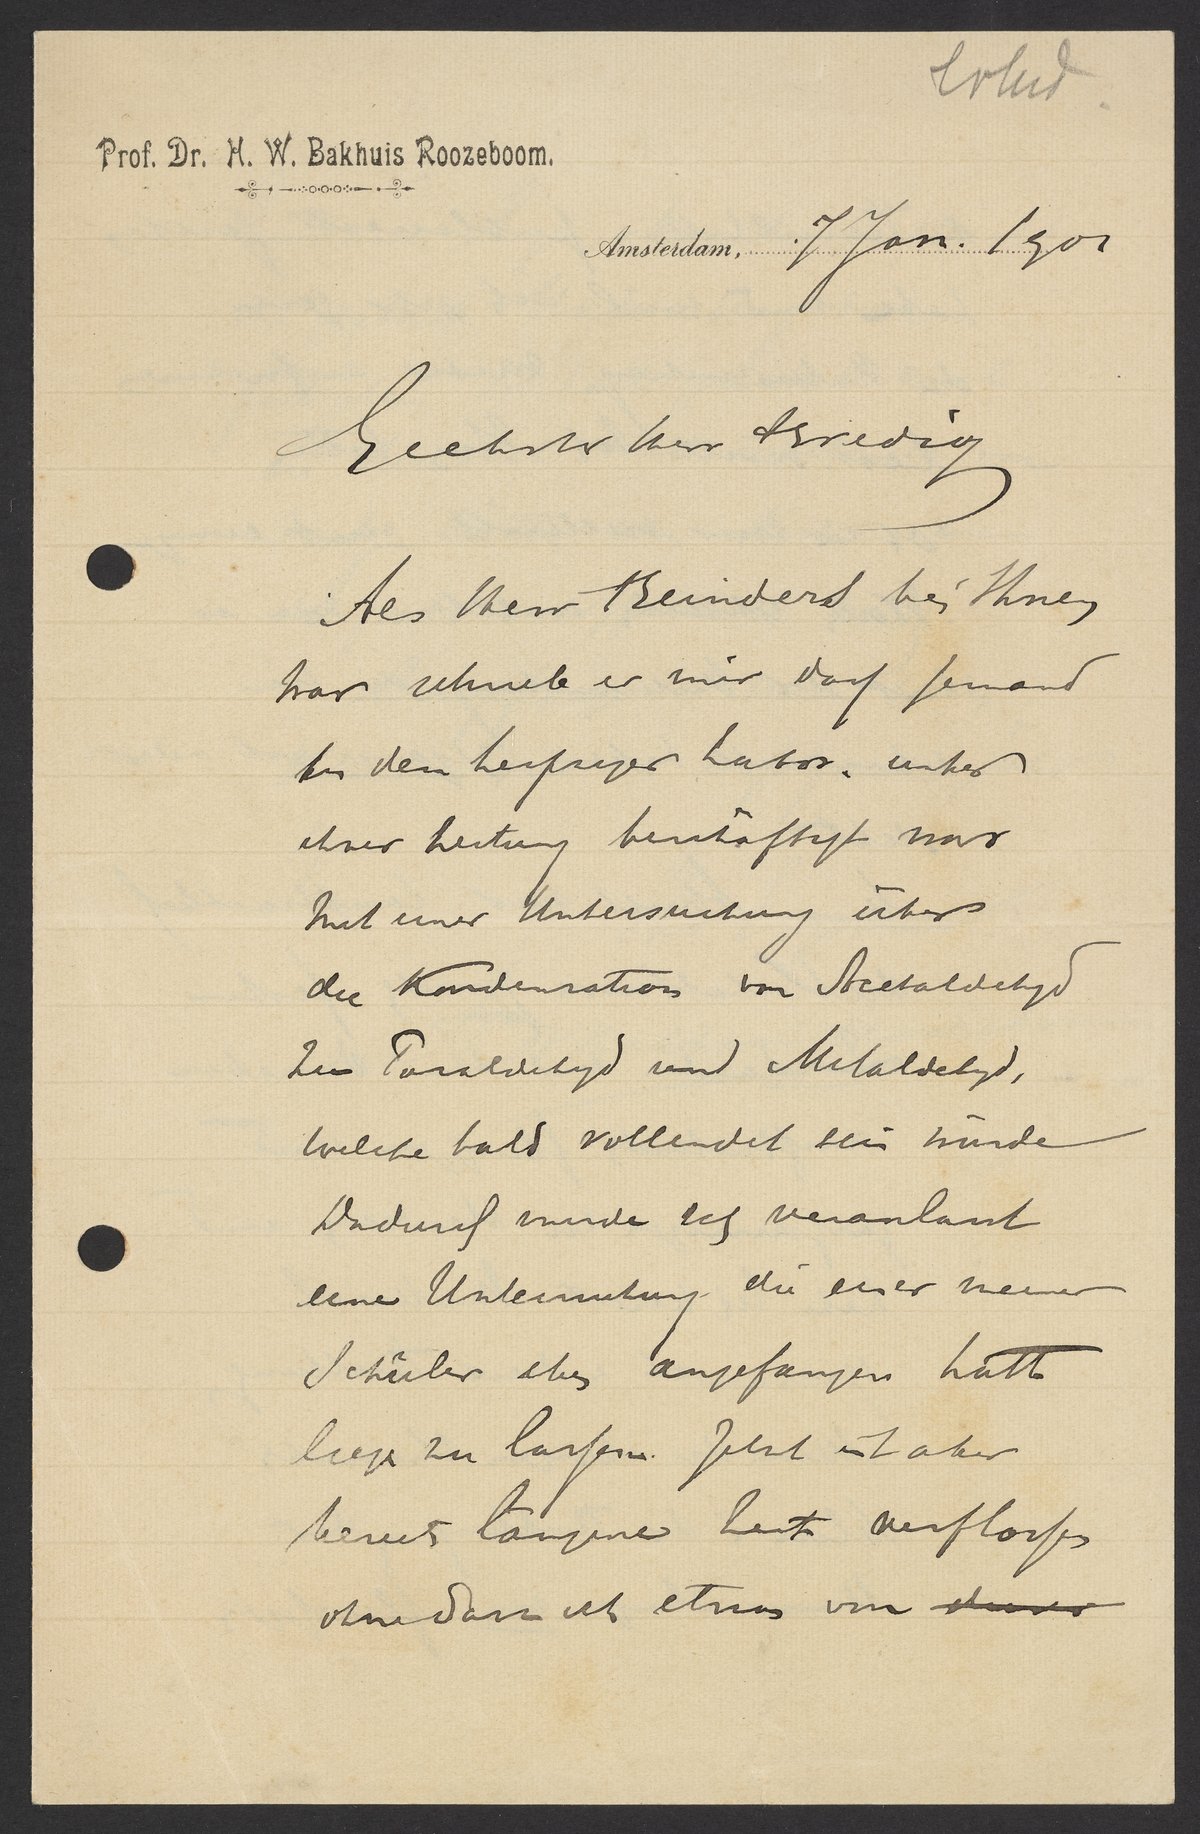 erled.
Prof. Dr. H. W. Bakhuis Roozeboom.
Amsterdam, 7 Jan. 1901
Geehrter Herr Bredig
Als Herr Reinders bei Ihnen
war schrieb er mir dasz Jemand
in dem Leipziger Labor. unter
ihrer Leitung beschäftigt war
mit einer Untersuchung über
die Kondensation von Acetaldehyd
zu Paraldehyd und Metaldehyd,
welche bald vollendet sein würde
Dadurch wurde ich veranlasst
eine Untersuchung die einer meiner
Schüler eben angefangen hatte
liegen zu lassen. Jetzt ist aber
bereits längere Zeit verflossen
ohne dass ich etwas von dieser